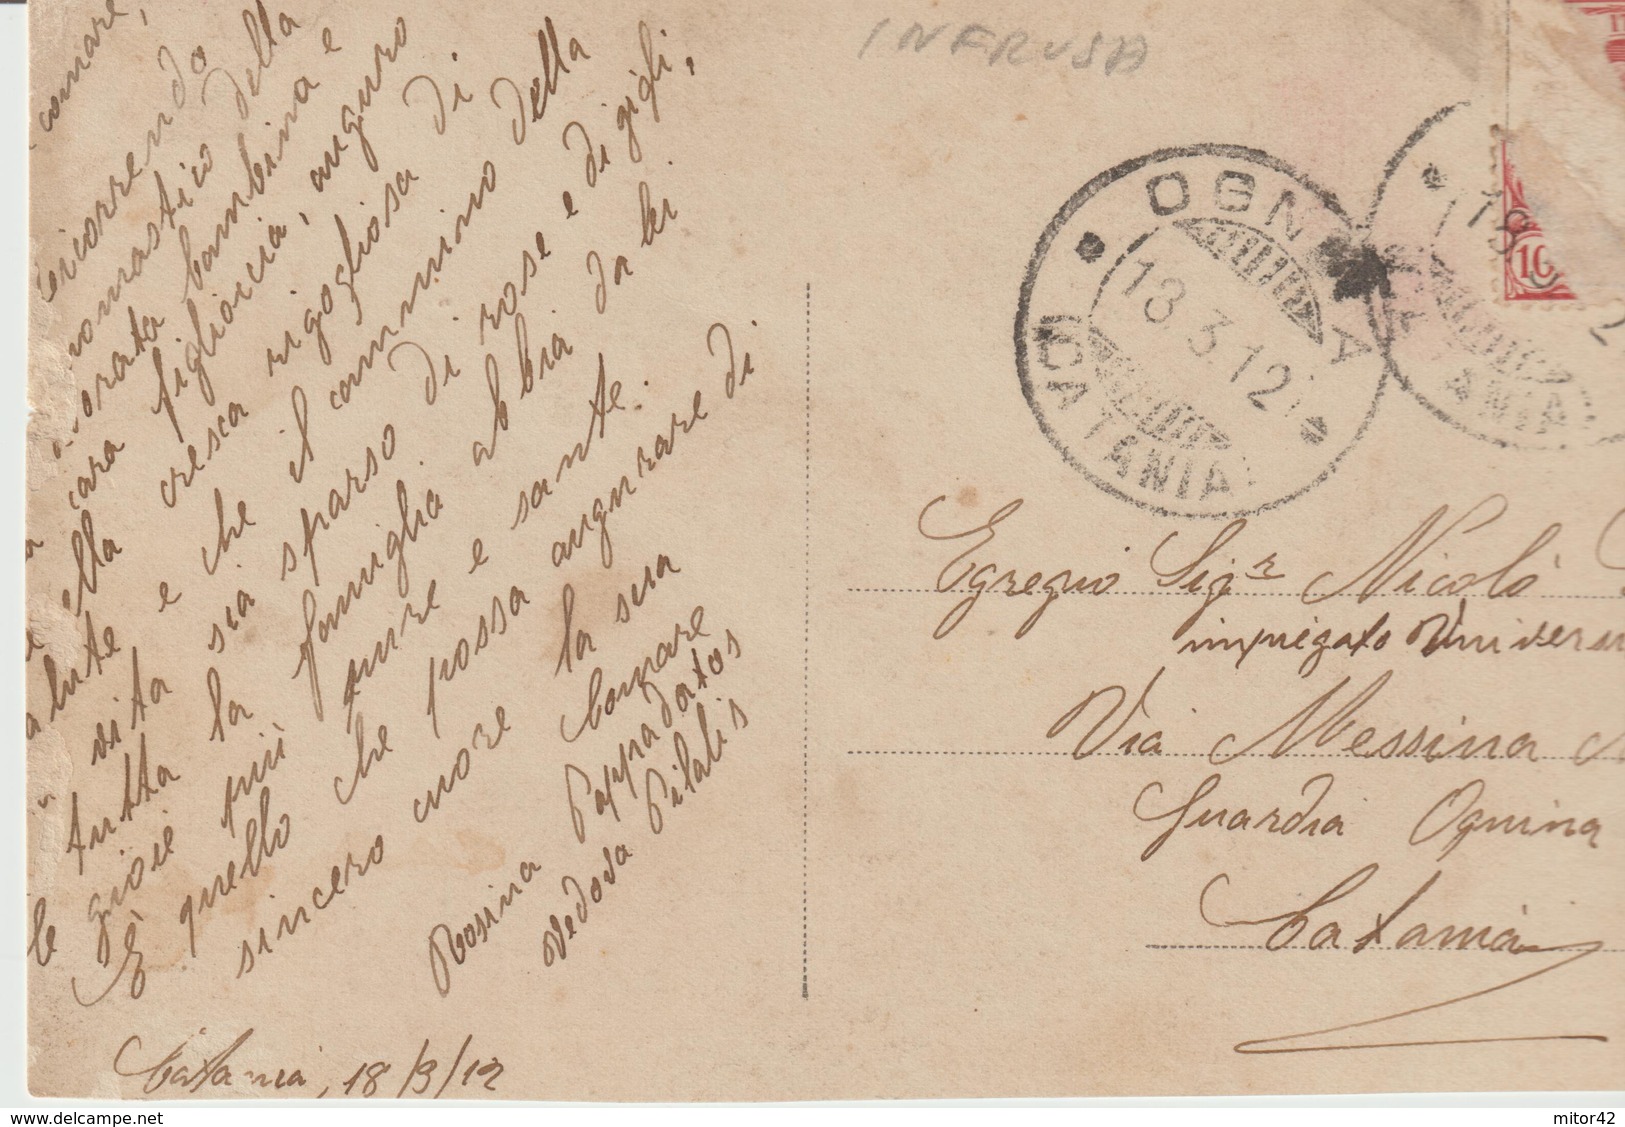 comare,
ricorrendo
onomastico della
adorata bambina e
cara figlioccia, auguro
ella cresca rigogliosa di
salute e che il cammino della
vita sia sparso di rose e di gigli,
tutta la famiglia abbia da lei
le gioie più pure e sante.
È quello che possa augurare di
sincero cuore la sua
Comare
Rosina Pappadatos
vedova Pilalis
Catania, 18/3/12
INFRUSA
OGNINA
13.3.12
(CATANIA)
ANIA
10
Egregio Sigr Nicolò
impiegato Univers
Via Messina
Guardia Ognina
Catania
delcampe.net
mitor42